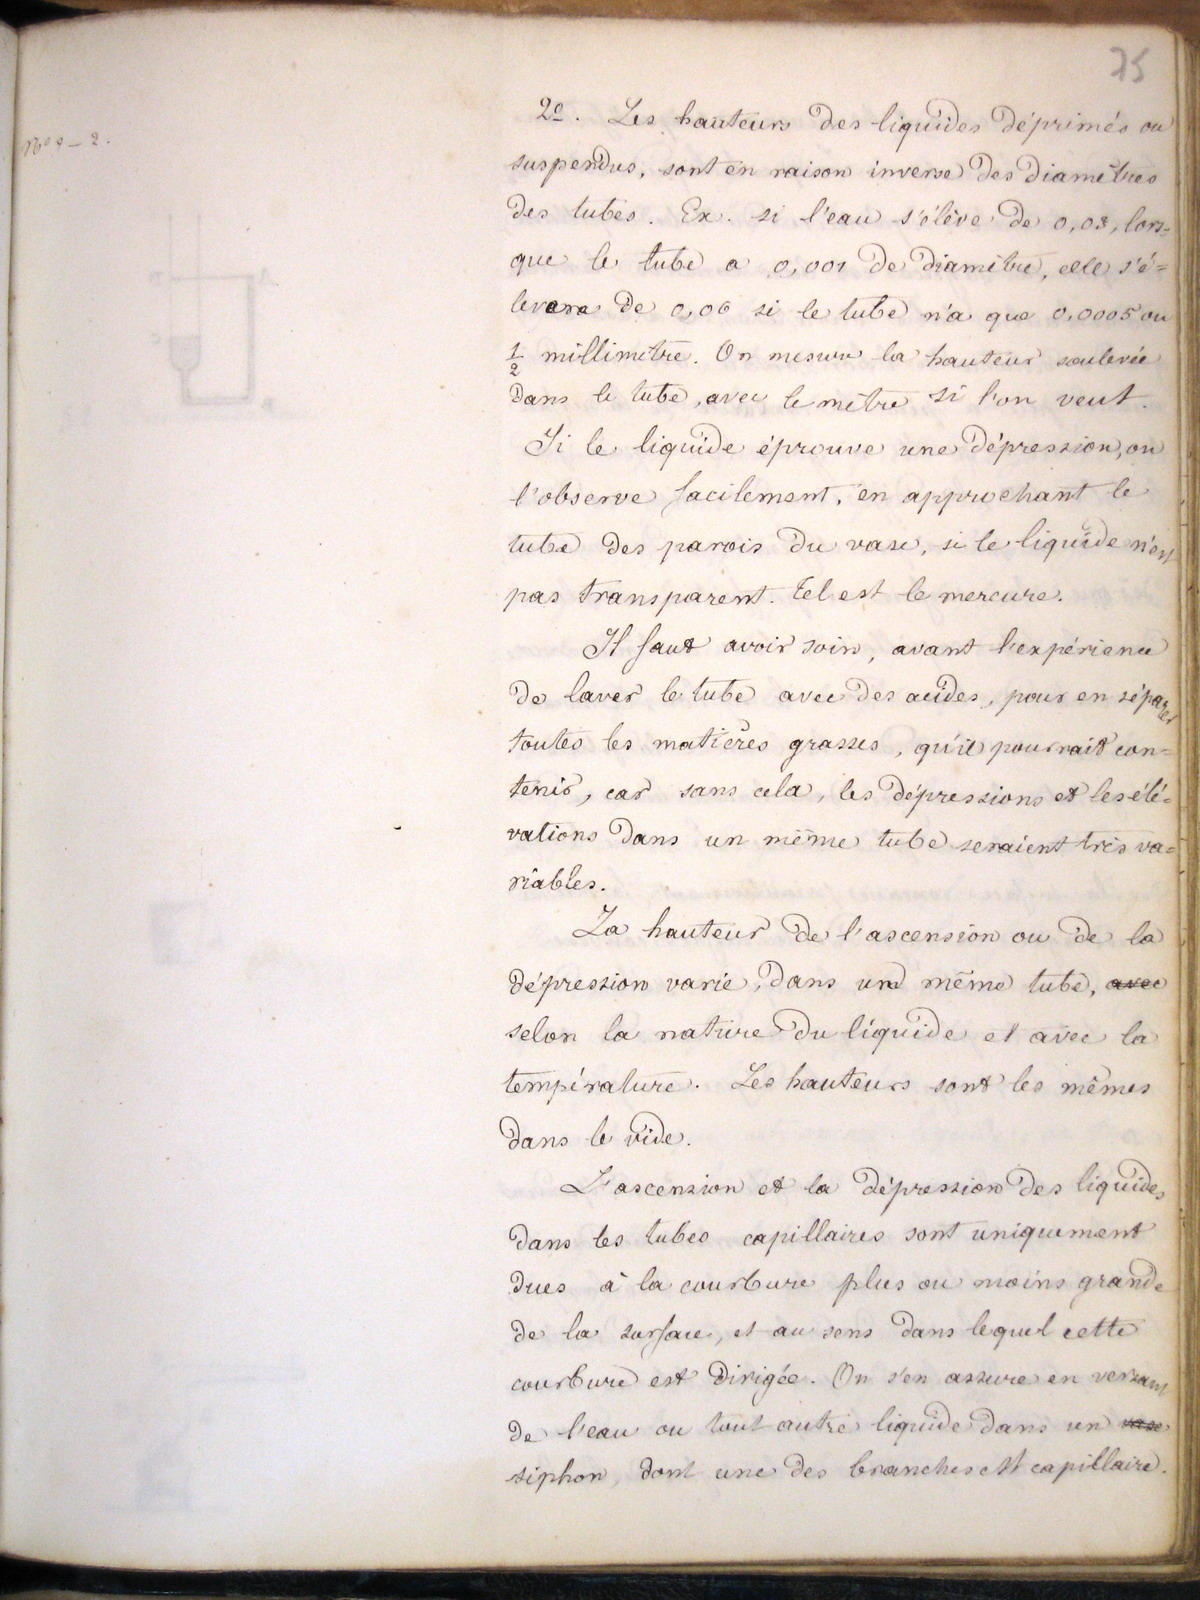 75
2º. Les hauteurs des liquides déprimés ou
suspendus, sont en raison inverse des diamètres
des tubes. Ex. si l'eau s'élève de 0,03, lors=
que le tube a 0,001 de diamètre, elle s'é=
levera de 0,06 si le tube n'a que 0,0005 ou
1/2 millimètre. On mesure la hauteur soulevée
dans le tube, avec le mètre si l'on veut.
Si le liquide éprouve une dépression, on
l'observe facilement, en approchant le
tube des parois du vase, si le liquide n'est
pas transparent. Tel est le mercure.
Il faut avoir soin, avant l'expérience
de laver le tube avec des acides, pour en séparer
toutes les matières grasses, qu'il pourrait con=
tenir, car sans cela, les dépressions et les élé=
vations dans un même tube seraient très va=
riables.
La hauteur de l'ascension ou de la
dépression varie, dans un même tube, avec
selon la nature du liquide et avec la
température. Les hauteurs sont les mêmes
dans le vide.
L'ascension et la dépression des liquides
dans les tubes capillaires sont uniquement
dues à la courbure plus ou moins grande
de la surface, et au sens dans lequel cette
courbure est dirigée. On s'en assure en versant
de l'eau ou tout autre liquide dans un vase
siphon, dont une des branches est capillaire.